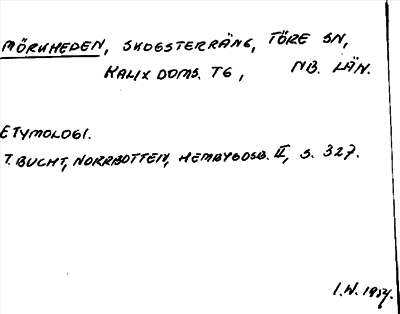 MÖRKHEDEN, SKOGSTERRÄNG, TÖRE SN,
KALIX DOMS. TG, NB. LÄN.
ETYMOLOGI.
T. BUCHT, NORRBOTTEN, HEMBYGDSB. II, S. 327.
I.W. 1984.